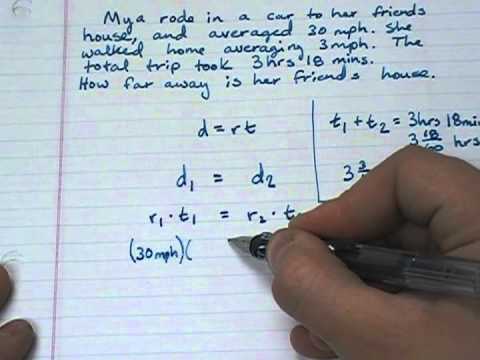 Mya rode in a car to her friends
house, and averaged 30 mph. She
walked home averaging 3mph. The
total trip took 3 hrs 18 mins.
How far away is her friend's house.
d = rt
t₁ + t₂ = 3hrs 18min
3 18/60 hrs
d₁ = d₂
3 3/
r₁ · t₁ = r₂ · t
(30mph)(